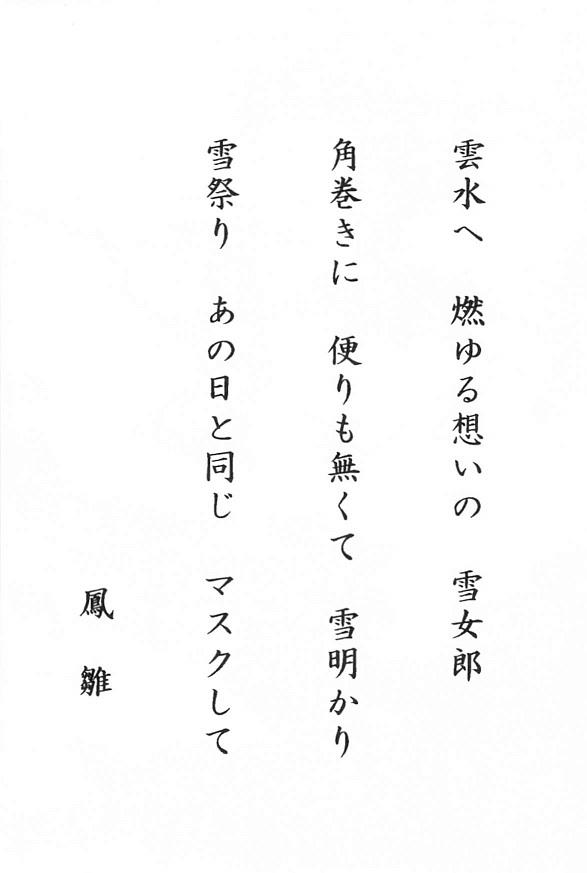 雲水へ　燃ゆる想いの　雪女郎
角巻きに　便りも無くて　雪明かり
雪祭り　あの日と同じ　マスクして
鳳　雛